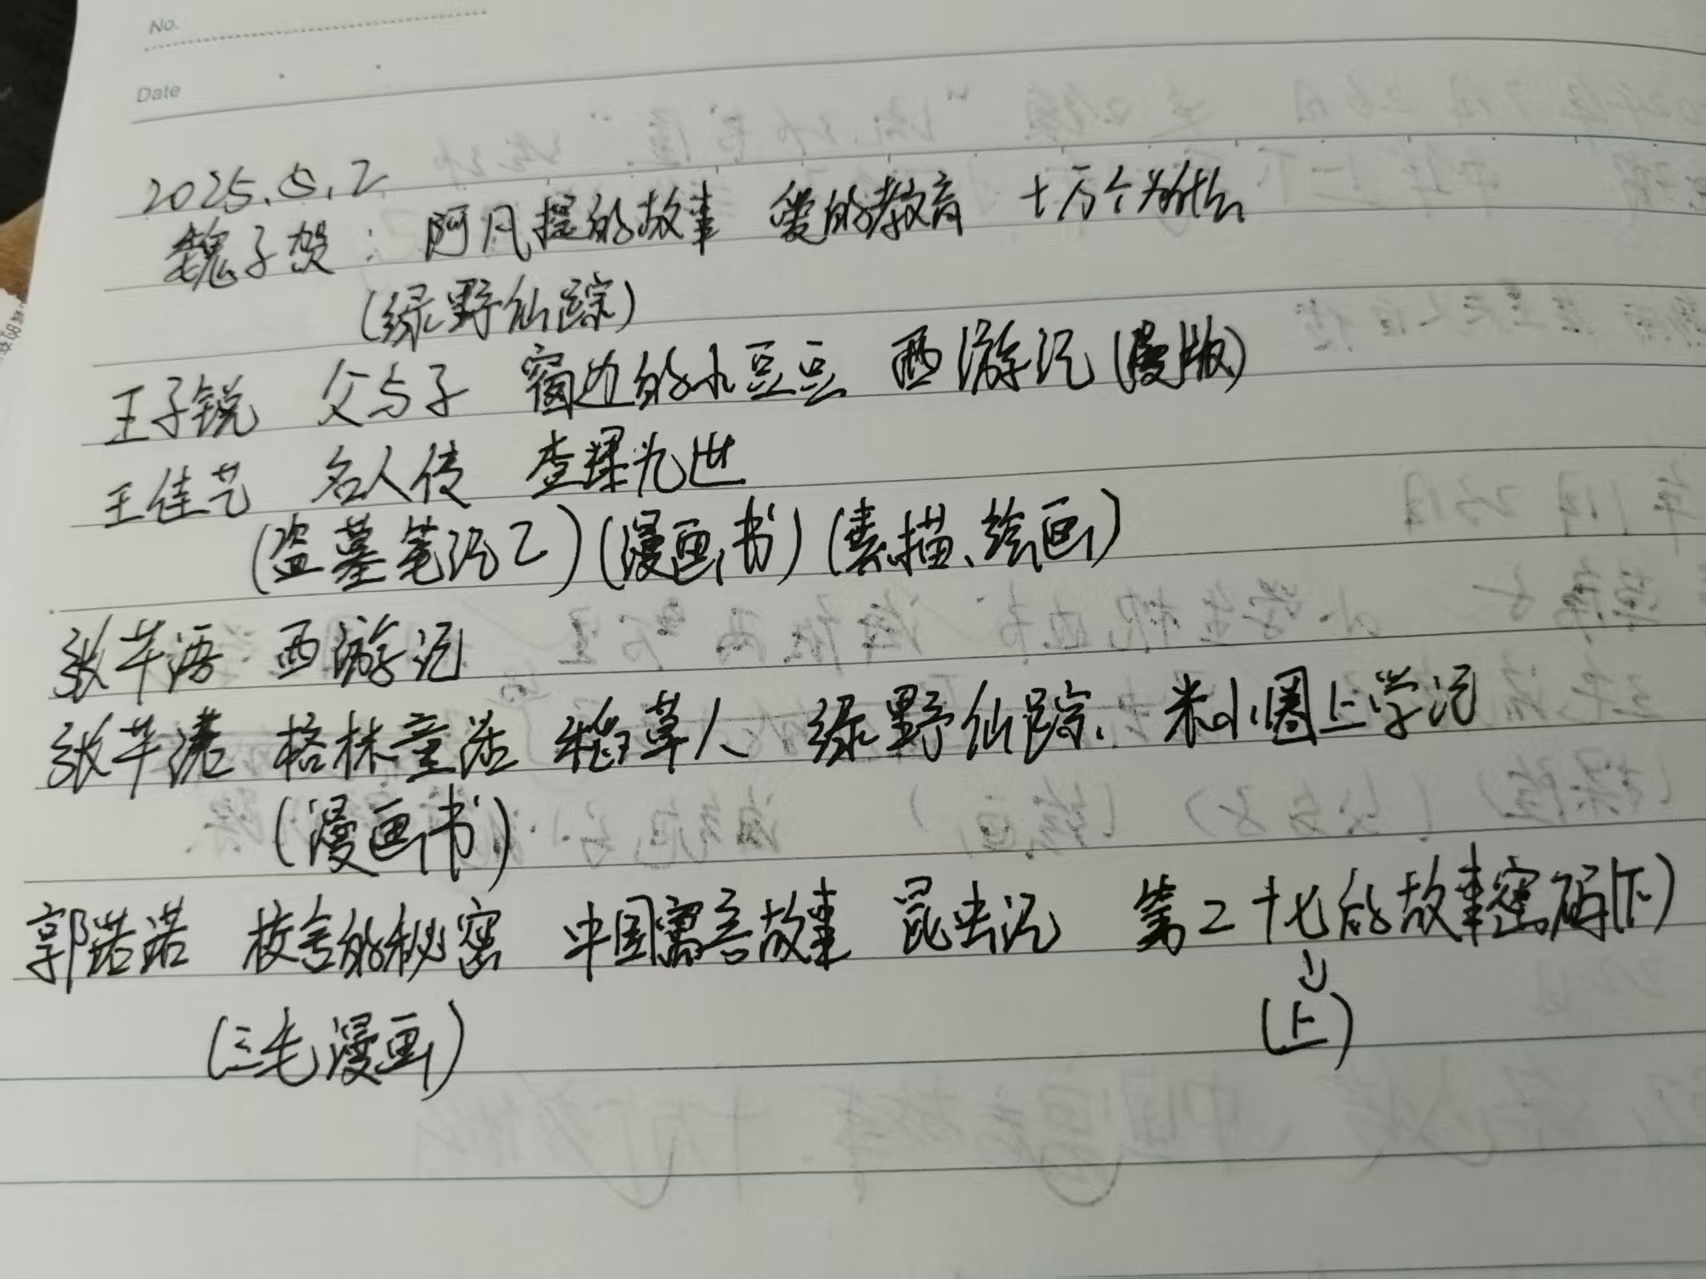 No.
Date
2025.5.2
魏子贺：阿凡提的故事 爱的教育 十万个为什么
(绿野仙踪)
王子锐 父与子 窗边的小豆豆 西游记(漫版)
王佳艺 名人传 查理九世
(盗墓笔记2)(漫画书)(素描、绘画)
张芊语 西游记
张芊 格林童话 稻草人 绿野仙踪、米小圈上学记
(漫画书)
郭诺诺 校舍的秘密 中国寓言故事 昆虫记 第二十七的故事密码(下)
(上)
(三毛漫画)